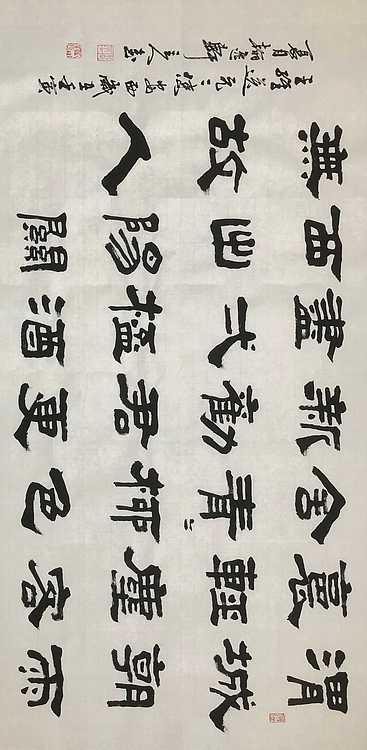 渭城朝雨
裛輕塵客
舍青々柳色
新勸君更
盡弌杯酒
西出陽關
無故人
王維送元二使安西歲在壬寅
夏月軒主人書